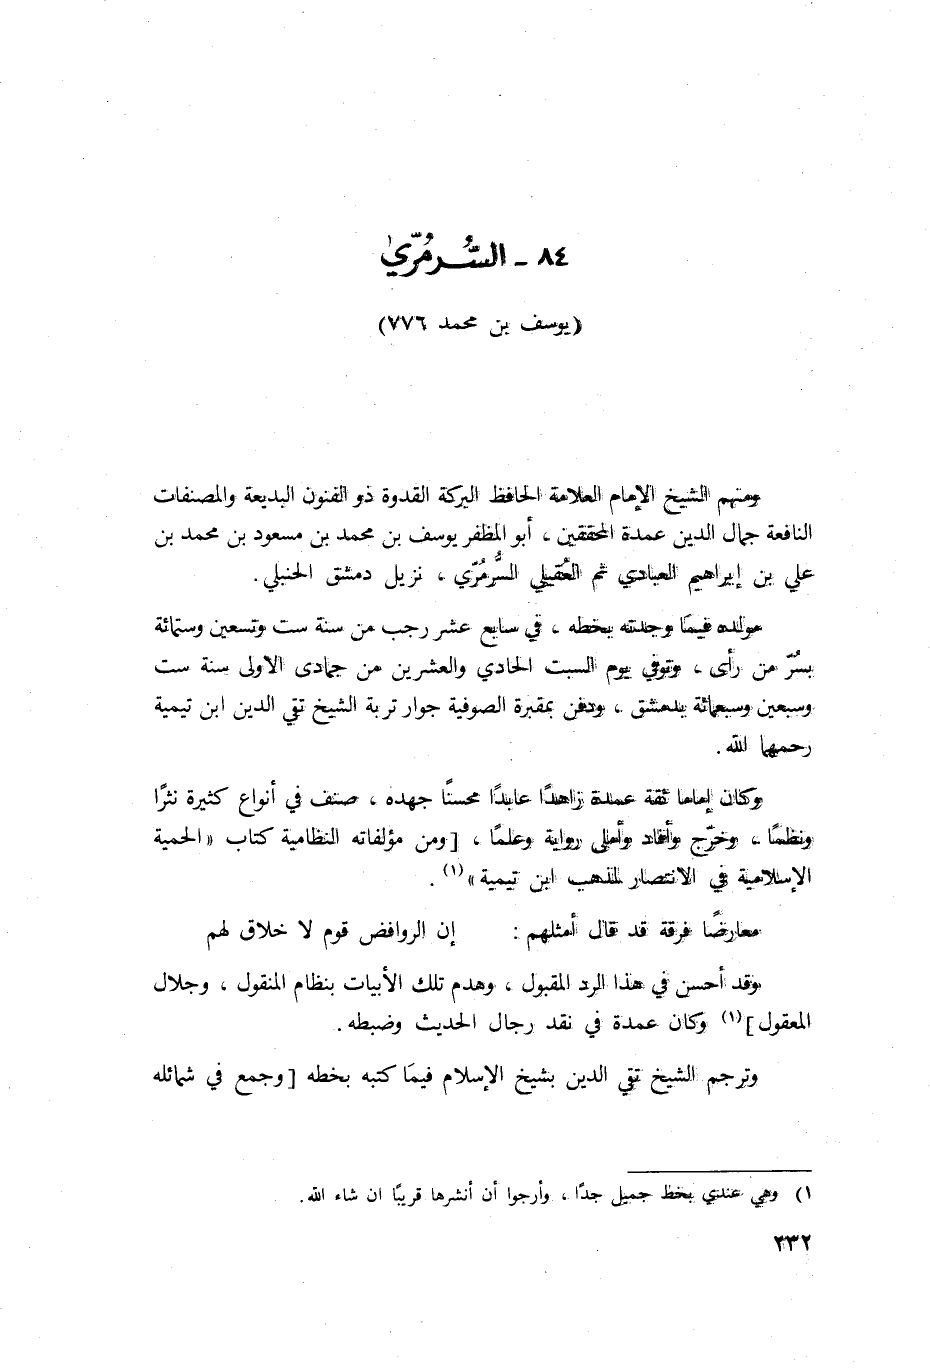 ٨٤ - السُّرمُرّيّ
(يوسف بن محمد ٧٧٦)
ومنهم الشيخ الإمام العلامة الحافظ البركة القدوة ذو الفنون البديعة والمصنفات
النافعة جمال الدين عمدة المحققين ، أبو المظفر يوسف بن محمد بن مسعود بن محمد بن
علي بن إبراهيم العبادي ثم العُقيلي السُّرمُرّي ، نزيل دمشق الحنبلي .
مولده فيمَا وجدته بخطه ، في سابع عشر رجب من سنة ست وتسعين وستمائة
بسُرّ من رأى ، وتوفي يوم السبت الحادي والعشرين من جمادى الاولى سنة ست
وسبعين وسبعمائة بدمشق ، ودفن بمقبرة الصوفية جوار تربة الشيخ تقي الدين ابن تيمية
رحمهما الله .
وكان إماما ثقة عمدة زاهدًا عابدًا محسنًا جهده ، صنف في أنواع كثيرة نثرًا
ونظمًا ، وخرّج وأفاد وأملى رواية وعلمًا ، [ومن مؤلفاته النظامية كتاب «الحمية
الإسلامية في الانتصار لمذهب ابن تيمية» (١) .
معارضًا فرقة قد قال أمثلهم : إن الروافض قوم لا خلاق لهم
وقد أحسن في هذا الرد المقبول ، وهدم تلك الأبيات بنظام المنقول ، وجلال
المعقول] (١) وكان عمدة في نقد رجال الحديث وضبطه .
وترجم الشيخ تقي الدين بشيخ الإسلام فيمَا كتبه بخطه [وجمع في شمائله
١) وهي عندي بخط جميل جدًا ، وأرجوا أن أنشرها قريبًا ان شاء الله .
٢٣٢